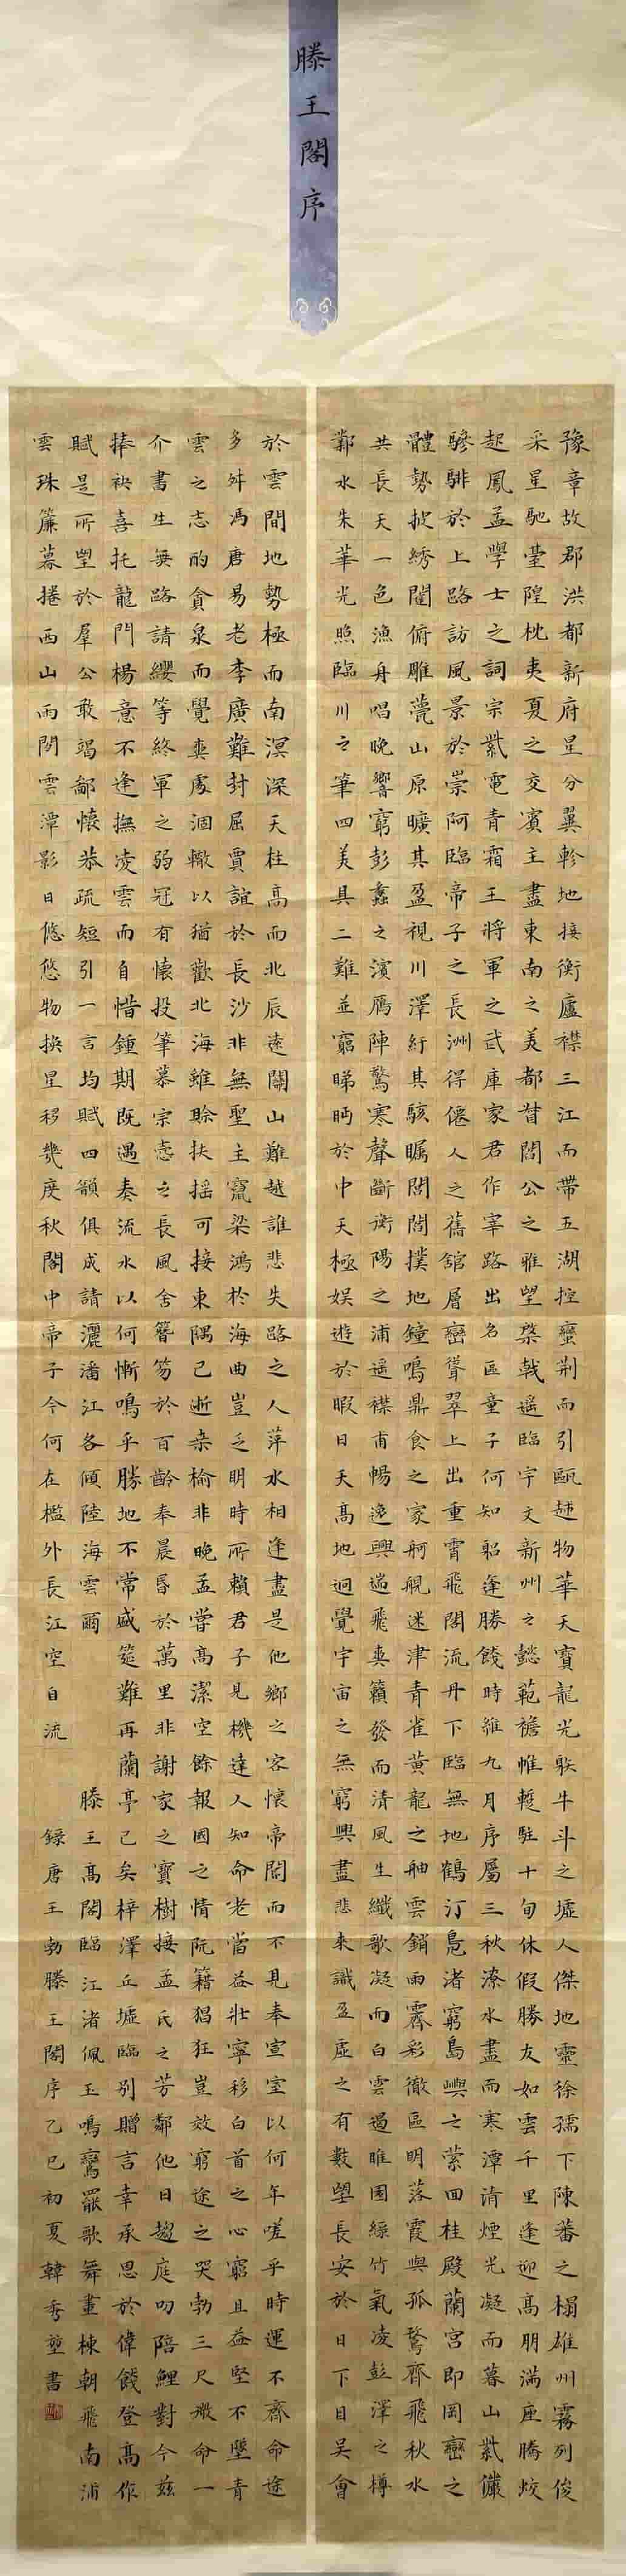 滕王閣序
豫章故郡洪都新府星分翼軫地接衡廬襟三江而帶五湖控蠻荊而引甌越物華天寶龍光射牛斗之墟人傑地靈徐孺下陳蕃之榻雄州霧列俊
采星馳臺隍枕夷夏之交賓主盡東南之美都督閻公之雅望棨戟遙臨宇文新州之懿範襜帷暫駐十旬休假勝友如雲千里逢迎高朋滿座騰蛟
起鳳孟學士之詞宗紫電青霜王將軍之武庫家君作宰路出名區童子何知躬逢勝餞時維九月序屬三秋潦水盡而寒潭清煙光凝而暮山紫儼
驂騑於上路訪風景於崇阿臨帝子之長洲得僊人之舊館層巒聳翠上出重霄飛閣流丹下臨無地鶴汀鳧渚窮島嶼之縈回桂殿蘭宮即岡巒之
體勢披綉闥俯雕甍山原曠其盈視川澤紆其駭矚閭閻撲地鐘鳴鼎食之家舸艦迷津青雀黃龍之舳雲銷雨霽彩徹區明落霞與孤鶩齊飛秋水
共長天一色漁舟唱晚響窮彭蠡之濱雁陣驚寒聲斷衡陽之浦遙襟甫暢逸興遄飛爽籟發而清風生纖歌凝而白雲遏睢園綠竹氣凌彭澤之樽
鄴水朱華光照臨川之筆四美具二難並窮睇眄於中天極娛遊於暇日天高地迥覺宇宙之無窮興盡悲來識盈虛之有數望長安於日下目吳會
於雲間地勢極而南溟深天柱高而北辰遠關山難越誰悲失路之人萍水相逢盡是他鄉之客懷帝閽而不見奉宣室以何年嗟乎時運不齊命途
多舛馮唐易老李廣難封屈賈誼於長沙非無聖主竄梁鴻於海曲豈乏明時所賴君子見機達人知命老當益壯寧移白首之心窮且益堅不墜青
雲之志酌貪泉而覺爽處涸轍以猶歡北海雖賒扶搖可接東隅已逝桑榆非晚孟嘗高潔空餘報國之情阮籍猖狂豈效窮途之哭勃三尺微命一
介書生無路請纓等終軍之弱冠有懷投筆慕宗愨之長風舍簪笏於百齡奉晨昏於萬里非謝家之寶樹接孟氏之芳鄰他日趨庭叨陪鯉對今茲
捧袂喜托龍門楊意不逢撫凌雲而自惜鍾期既遇奏流水以何慚嗚乎勝地不常盛筵難再蘭亭已矣梓澤丘墟臨別贈言幸承恩於偉餞登高作
賦是所望於羣公敢竭鄙懷恭疏短引一言均賦四韻俱成請灑潘江各傾陸海雲爾 滕王高閣臨江渚佩玉鳴鸞罷歌舞畫棟朝飛南浦
雲珠簾暮捲西山雨閑雲潭影日悠悠物換星移幾度秋閣中帝子今何在檻外長江空自流 錄唐王勃滕王閣序乙巳初夏韓秀堃書